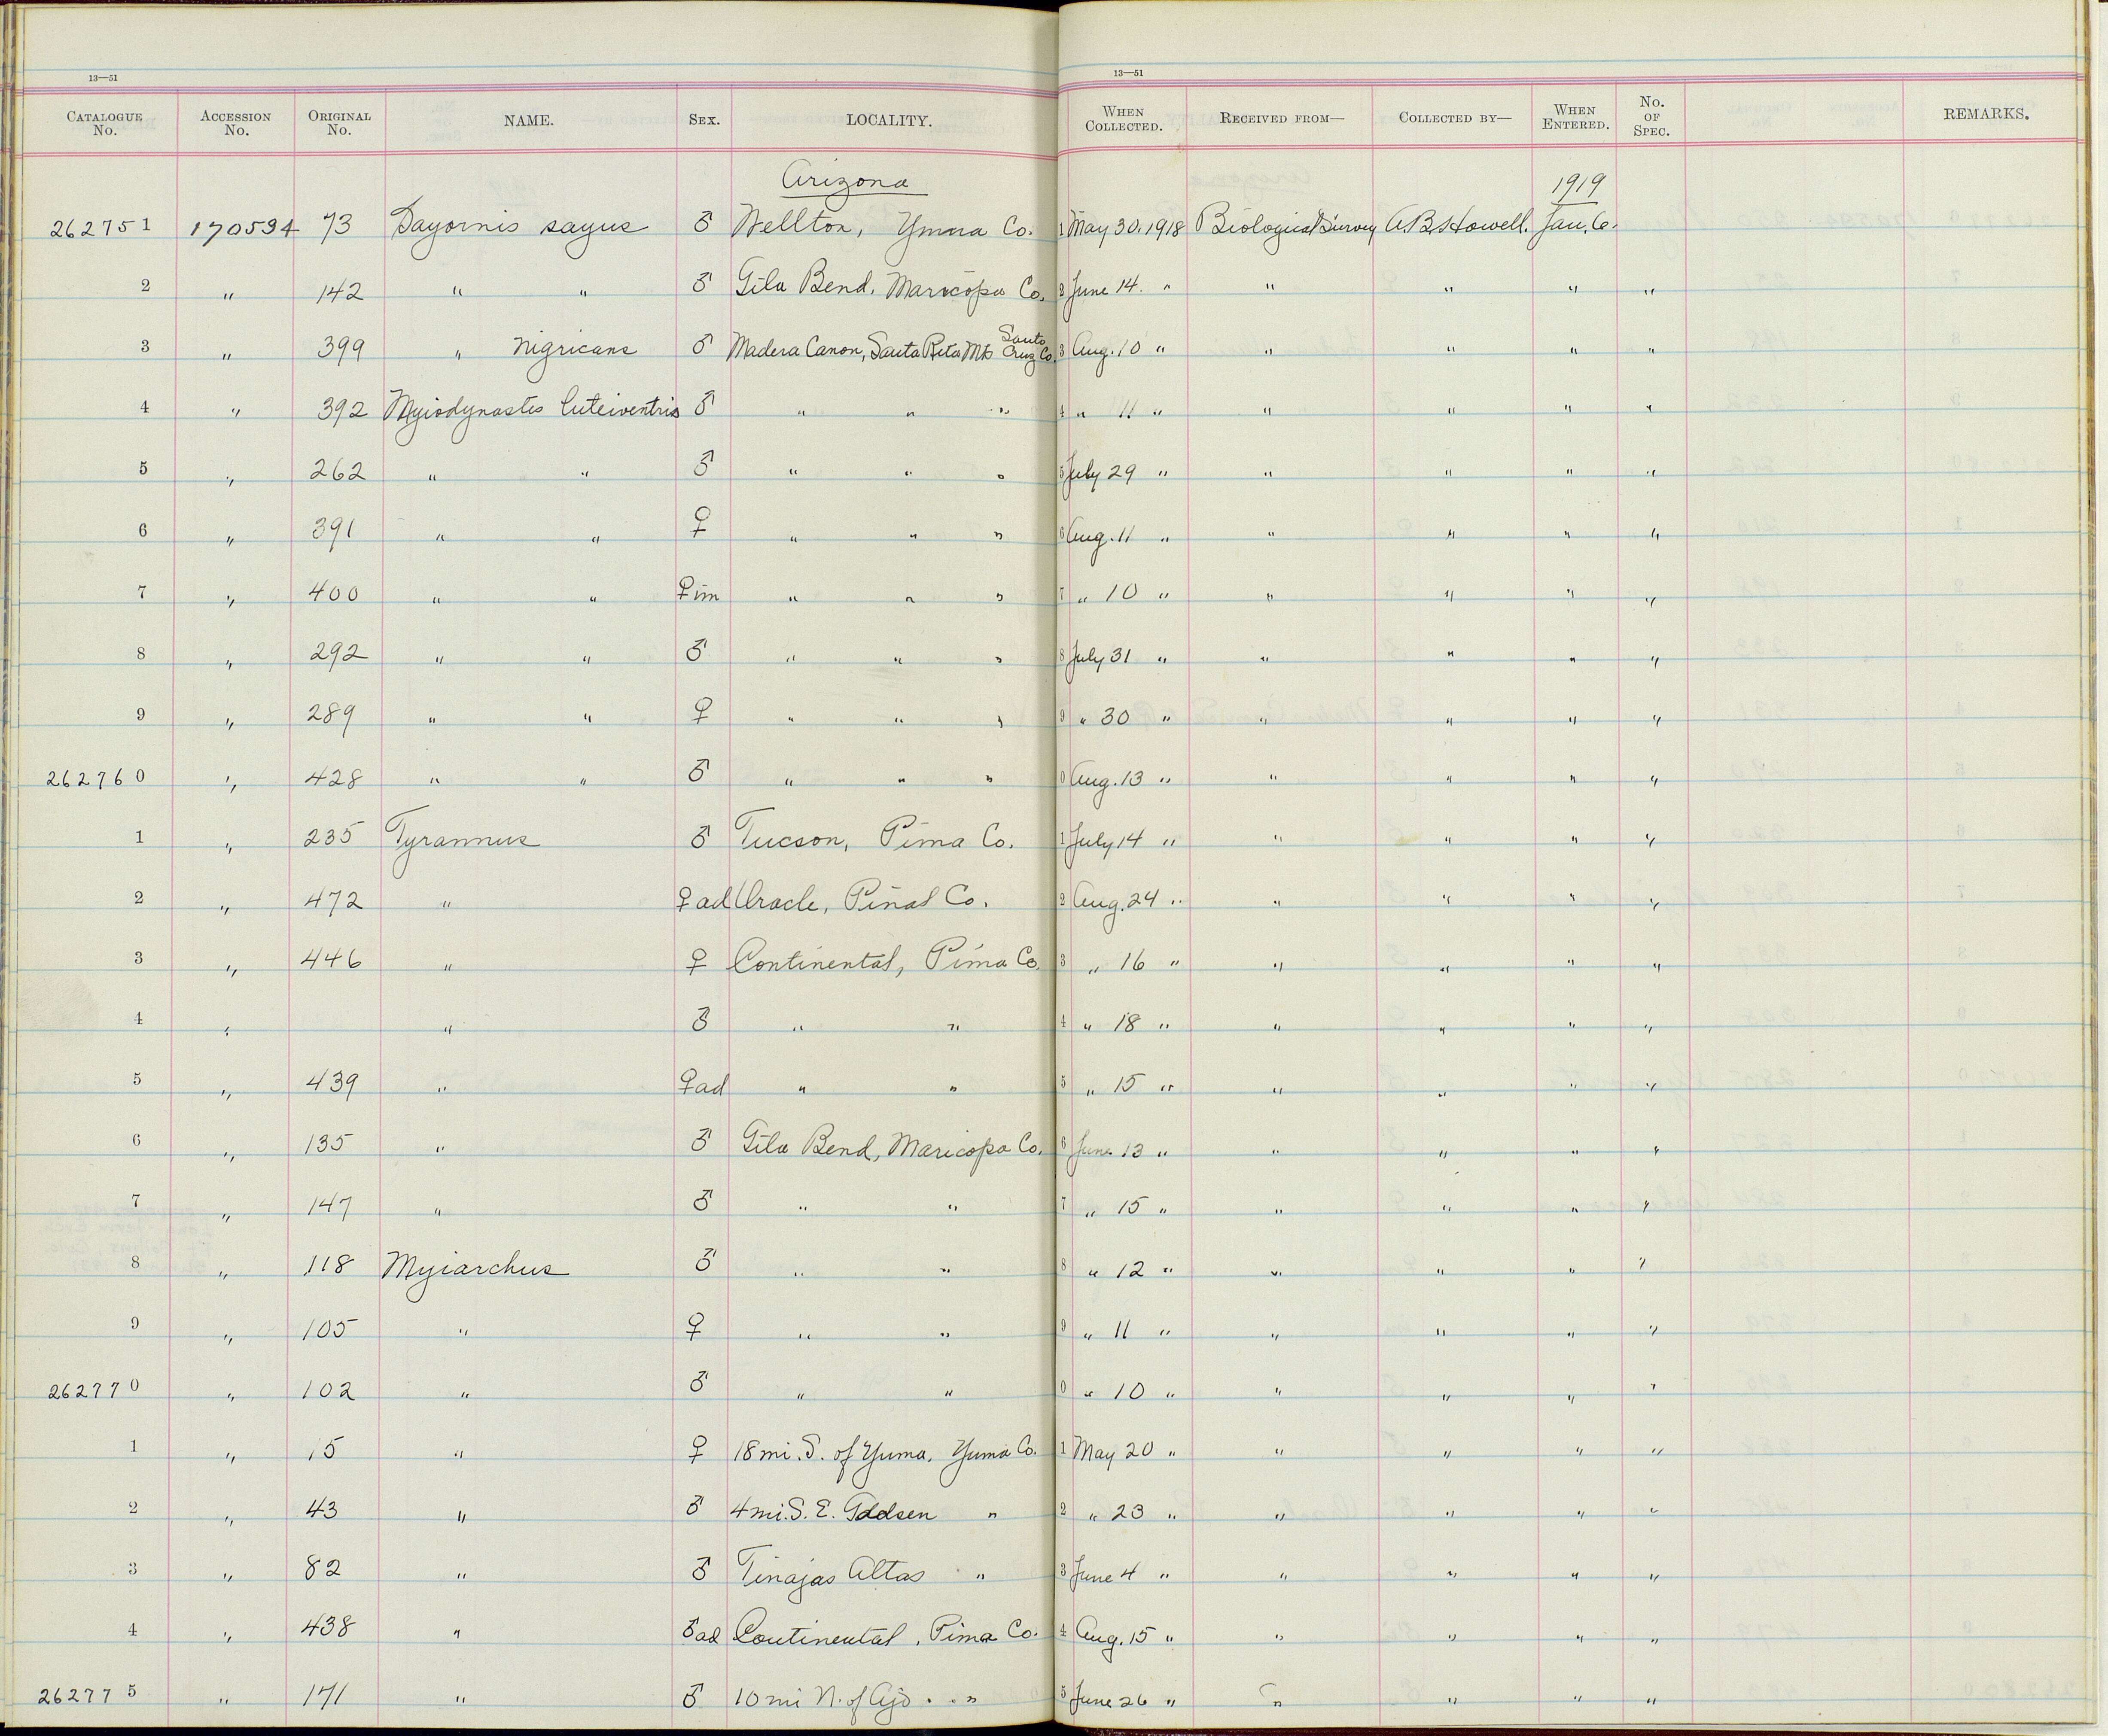 13—51 13—51
CATALOGUE No. ACCESSION No. ORIGINAL No. NAME. SEX. LOCALITY. WHEN COLLECTED. RECEIVED FROM— COLLECTED BY— WHEN ENTERED. No. OF SPEC. REMARKS.
Arizona 1919
262751 170594 73 Sayornis sayus ♂ Wellton, Yuma Co. 1 May 30. 1918 Biological Survey A.B. Howell. Jan. 6.
2 " 142 " " ♂ Gila Bend, Maricopa Co. 2 June 14. " " " " "
3 " 399 " nigricans ♂ Madera Canon, Santa Rita Mts Santa Cruz Co. 3 Aug. 10 " " " " "
4 " 392 Myiodynastes luteiventris ♂ " " " 4 " 11 " " " " "
5 " 262 " " ♂ " " " 5 July 29 " " " " "
6 " 391 " " ♀ " " " 6 Aug. 11 " " " " "
7 " 400 " " ♀ im " " " 7 " 10 " " " " "
8 " 292 " " ♂ " " " 8 July 31 " " " " "
9 " 289 " " ♀ " " " 9 " 30 " " " " "
262760 " 428 " " ♂ " " " 0 Aug. 13 " " " " "
1 " 235 Tyrannus ♂ Tucson, Pima Co. 1 July 14 " " " " "
2 " 472 " ♀ ad Oracle, Pinal Co. 2 Aug. 24 " " " " "
3 " 446 " ♀ Continental, Pima Co. 3 " 16 " " " " "
4 " " ♂ " " 4 " 18 " " " " "
5 " 439 " ♀ ad " " 5 " 15 " " " " "
6 " 135 " ♂ Gila Bend, Maricopa Co. 6 June 13 " " " " "
7 " 147 " ♂ " " 7 " 15 " " " " "
8 " 118 Myiarchus ♂ " " 8 " 12 " " " " "
9 " 105 " ♀ " " 9 " 11 " " " " "
262770 " 102 " ♂ " " 0 " 10 " " " " "
1 " 15 " ♀ 18 mi. S. of Yuma, Yuma Co. 1 May 20 " " " " "
2 " 43 " ♂ 4 mi. S. E. Gadsen " 2 " 23 " " " " "
3 " 82 " ♂ Tinajas Altas " 3 June 4 " " " " "
4 " 438 " ♂ ad Continental, Pima Co. 4 Aug. 15 " " " " "
262775 " 171 " ♂ 10 mi N. of Ajo " " 5 June 26 " " " " "